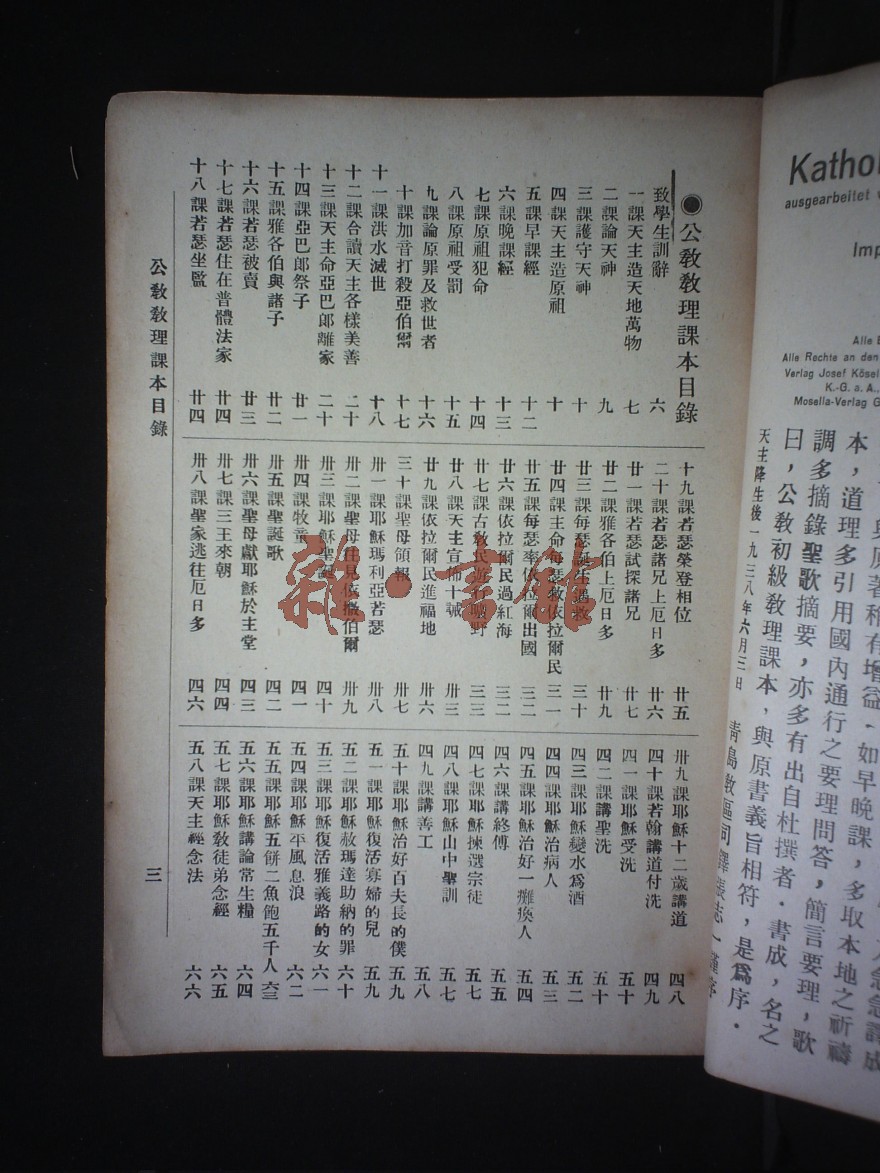 Kathol
ausgearbeitet v
Imp
Alle Rechte an den
Verlag Josef Kösel
K.-G. a. A.,
Mosella-Verlag G
與原著稍有增益．如早晚課，多取本地之祈禱
本，道理多引用國內通行之要理問答，簡言要理，歌
調多摘錄聖歌摘要，亦多有出自杜撰者．書成，名之
曰，公敎初級敎理課本，與原書義旨相符，是爲序．
天主降生後一九三八年六月三日
●公敎敎理課本目錄
致學生訓辭 六
一課天主造天地萬物 七
二課論天神 九
三課護守天神 十
四課天主造原祖 十
五課早課經 十二
六課晚課經 十三
七課原祖犯命 十四
八課原祖受罰 十五
九課論原罪及救世者 十六
十課加音打殺亞伯爾 十七
十一課洪水滅世 十八
十二課合讀天主各樣美善 二十
十三課天主命亞巴郎離家 二十
十四課亞巴郎祭子 廿一
十五課雅各伯與諸子 廿二
十六課若瑟被賣 廿三
十七課若瑟住在普體法家 廿四
十八課若瑟坐監 廿四
十九課若瑟榮登相位 廿五
二十課若瑟諸兄上厄日多 廿六
廿一課若瑟試探諸兄 廿七
廿二課雅各伯上厄日多 廿九
廿三課每瑟誕生遇救 三十
廿四課主命每瑟救依拉爾民 三一
廿五課每瑟率依拉爾出國 三二
廿六課依拉爾民過紅海 三二
廿七課古敎民遊行曠野 三三
廿八課天主宣佈十誡 卅三
廿九課依拉爾民進福地 卅六
三十課聖母領報 卅七
卅一課耶穌瑪利亞若瑟 卅八
卅二課聖母往見依撒伯爾 卅九
卅三課耶穌聖誕 四十
卅四課牧童 四一
卅五課聖誕歌 四二
卅六課聖母獻耶穌於主堂 四三
卅七課三王來朝 四四
卅八課聖家逃往厄日多 四六
卅九課耶穌十二歲講道 四八
四十課若翰講道付洗 四九
四一課耶穌受洗 五十
四二課講聖洗 五十
四三課耶穌變水爲酒 五二
四四課耶穌治病人 五三
四五課耶穌治好一癱瘓人 五四
四六課講終傅 五五
四七課耶穌揀選宗徒 五七
四八課耶穌山中聖訓 五七
四九課講善工 五八
五十課耶穌治好百夫長的僕 五九
五一課耶穌復活寡婦的兒 五九
五二課耶穌赦瑪達助納的罪 六十
五三課耶穌復活雅義路的女 六一
五四課耶穌平風息浪 六二
五五課耶穌五餅二魚飽五千人 六三
五六課耶穌講論常生糧 六四
五七課耶穌敎徒弟念經 六五
五八課天主經念法 六六
公敎敎理課本目錄
三
雜·書館